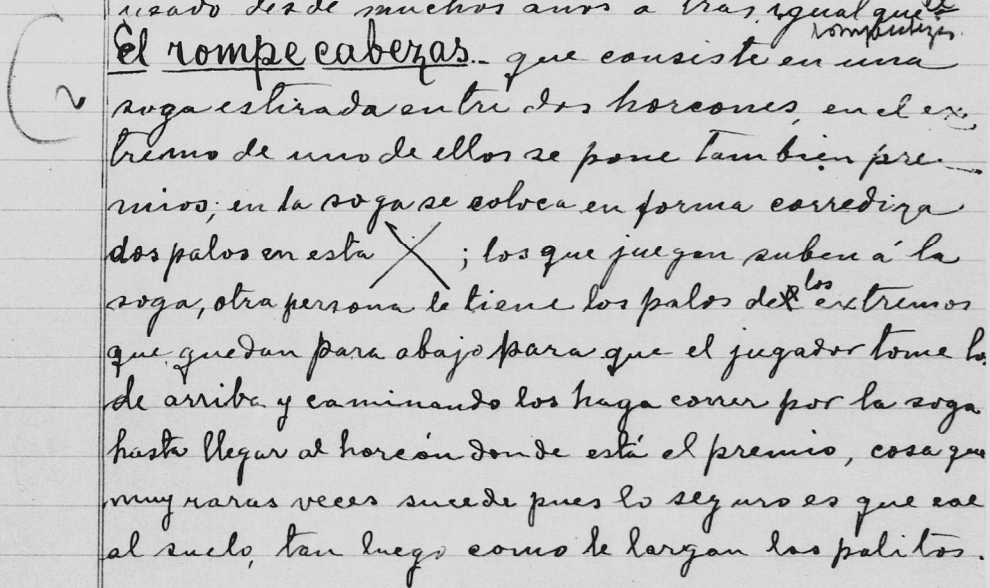 usado desde muchos años a tras, igual que el
rompecabezas.
El rompe cabezas.- que consiste en una
2
soga estirada entre dos horcones, en el ex-
tremo de uno de ellos se pone tambien pre-
mios; en la soga se coloca en forma corrediza
dos palos en esta X ; los que juegan suben á la
soga, otra persona le tiene los palos de los extremos
que quedan para abajo para que el jugador tome lo
de arriba y caminando los haga correr por la soga
hasta llegar al horcón donde está el premio, cosa que
muy raras veces sucede pues lo seguro es que cae
al suelo, tan luego como le largan los palitos.